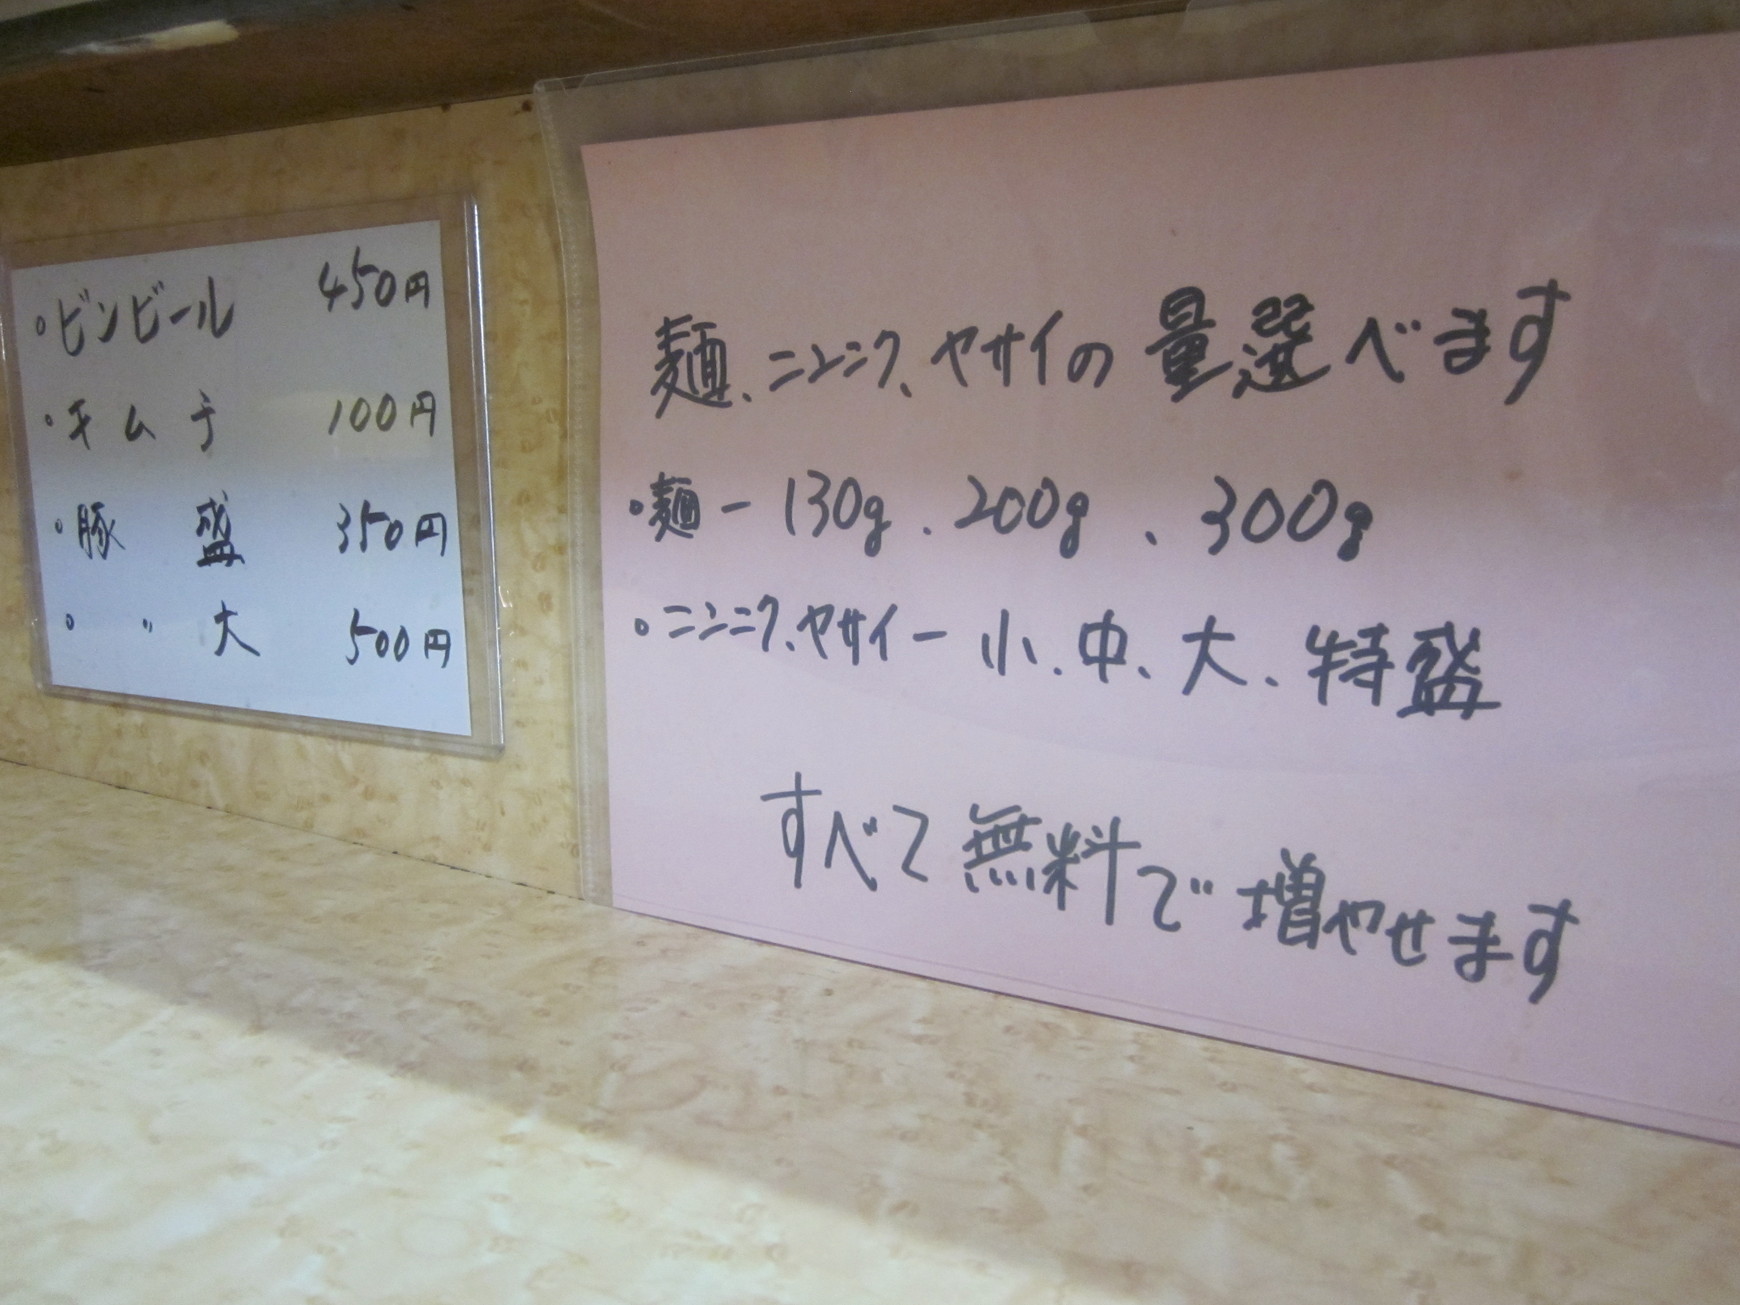 ・ビンビール 450円
・キムチ 100円
・豚 盛 350円
・ 〃 大 500円
麺、ニンニク、ヤサイの量選べます
・麺ー130g、200g、300g
・ニンニク、ヤサイー小、中、大、特盛
すべて無料で増やせます